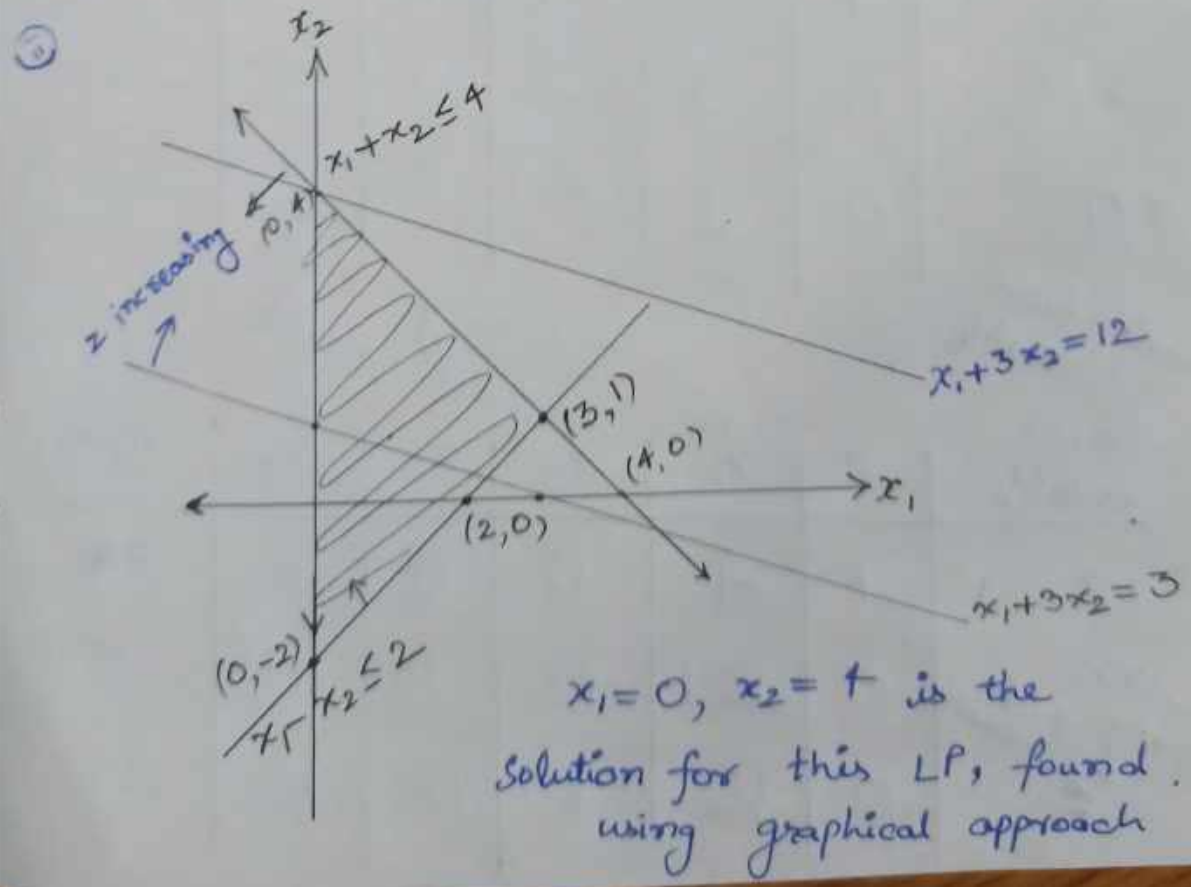 x₂
x₁+x₂≤4
(0,4)
z increasing
x₁+3x₂=12
(3,1)
(4,0)
x₁
(2,0)
x₁+3x₂=3
(0,-2)
x₁-x₂≤2
x₁=0, x₂=4 is the
solution for this LP, found.
using graphical approach